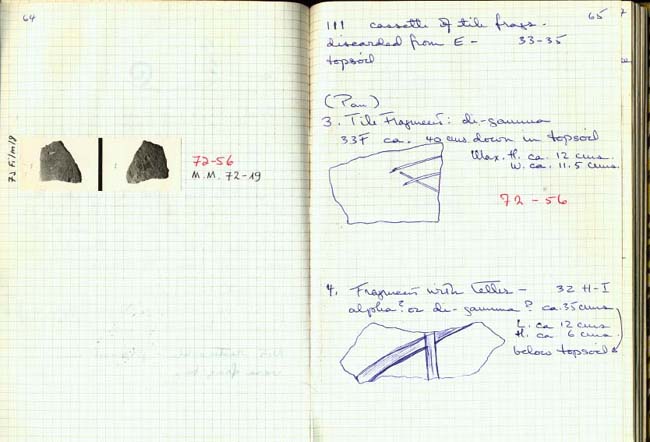 64
72 Fi/m/8
72-56
M.M. 72-19
65
111 cassette of tile frags.
discarded from E- 33-35
topsoil
(Pan)
3. Tile Fragment: di-gamma
33F ca. 40 cms down in topsoil
Max. H. ca. 12 cms.
W. ca. 11.5 cms.
72-56
4. Fragment with letter - 32 H-I
alpha? or di-gamma? ca. 35 cms
L. ca 12 cms
H. ca 6 cms
below topsoil